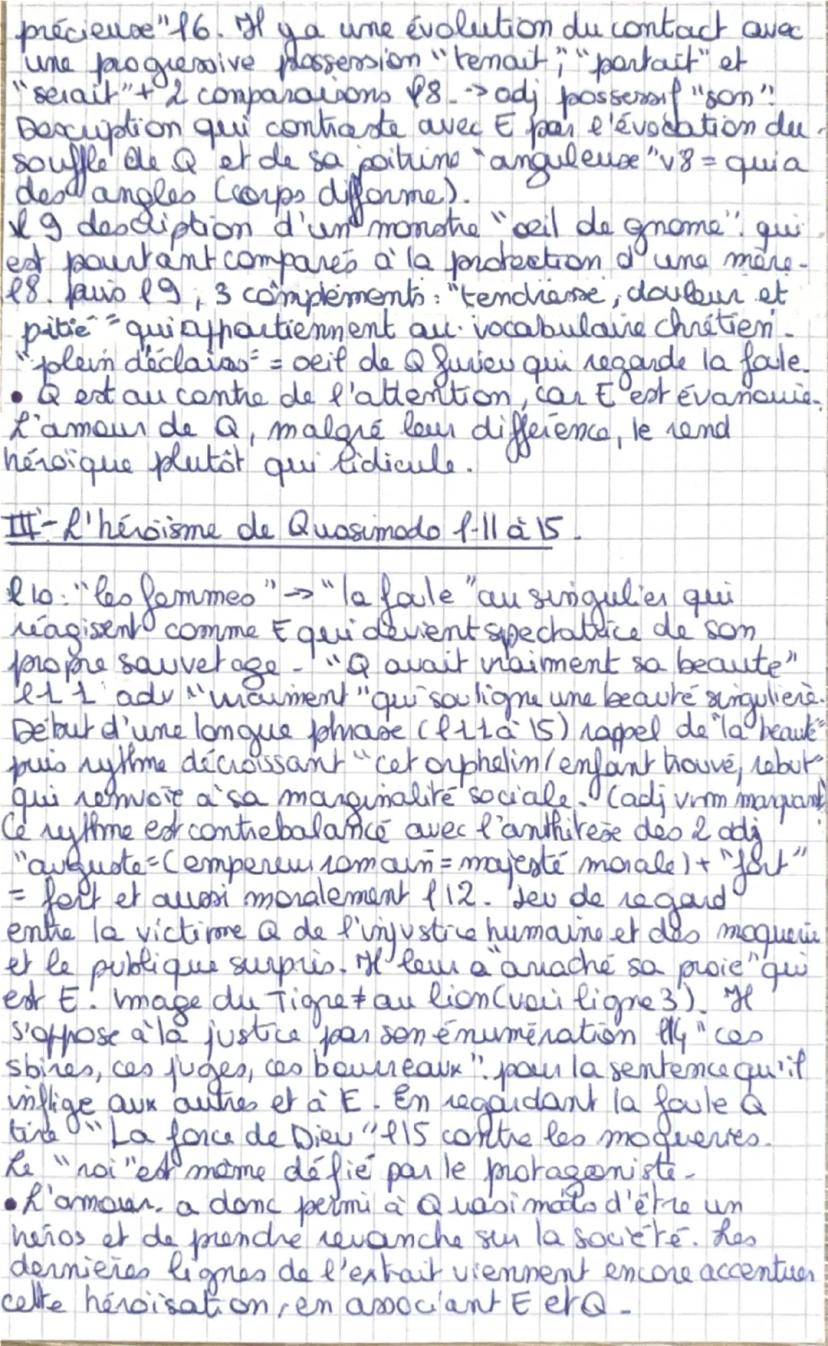 précieuse" l6. Il y a une évolution du contact avec
une progressive possession "tenait", "portait" et
"serait" + 2 comparaisons l8. -> adj possessif "son".
Description qui contraste avec E par l'évocation du
souffle de Q et de sa poitrine "anguleuse" v8 = qui a
des angles (corps difforme).
l 9 description d'un monstre "oeil de gnome". qui
est pourtant comparés à la protection d'une mère.
l8. puis l9, 3 compléments : "tendresse, douleur et
pitié" qui appartiennent au vocabulaire chrétien.
"plein d'éclairs" = oeil de Q furieu qui regarde la foule.
• Q est au centre de l'attention, car E est évanouie.
L'amour de Q, malgré leur différence, le rend
héroïque plutôt qui ridicule.
III - L'héroïsme de Quasimodo l-11 à 15.
l10: "les femmes" -> "la foule" au singulier qui
réagisent comme E qui devient spectatrice de son
propre sauvetage - "Q avait vraiment sa beaute"
l11 adv "vraiment" qui souligne une beauté singulière.
Début d'une longue phrase (l11 à 15) rappel de "la beauté"
puis rythme décroissant "cet orphelin/enfant trouvé, rebut"
qui renvoie à sa marginalité sociale. (adj vrm marquant)
Ce rythme est contrebalancé avec l'anthitèse des 2 adj
"auguste=(empereur romain = majesté morale) + "fort"
= fort et aussi moralement l12. Jeu de regard
entre la victime Q de l'injustice humaine et des moquerie
et le publique surpris. Il leur a "arraché sa proie" qui
est E. Image du Tigre ≠ au lion (voir ligne 3). Il
s'oppose à la justice par son énumération l14 "ces
sbires, ces juges, ces bourreaux". pour la sentence qu'il
inflige aux autres et à E. En regardant la foule Q
tire "La force de Dieu" l15 contre les moqueries.
Le "roi" est même défié par le protagoniste -
• L'amour. a donc permi à Quasimodo d'être un
héros et de prendre revanche sur la société. Les
dernières lignes de l'extrait viennent encore accentuer
cette héroïsation, en associant E et Q -